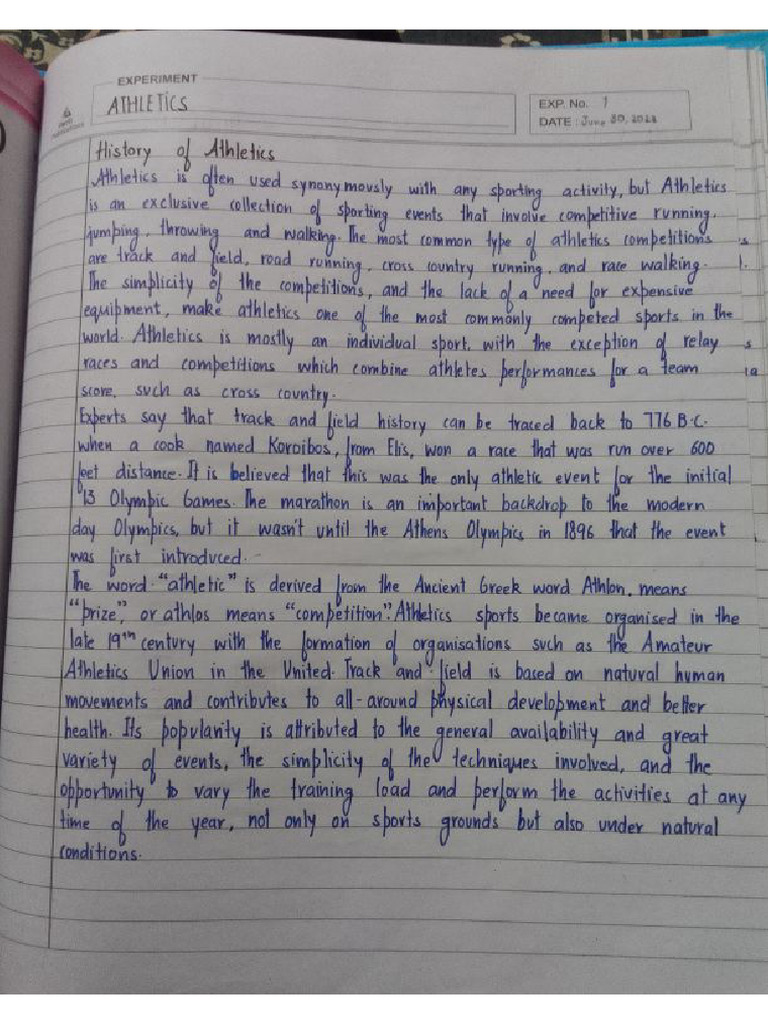 EXPERIMENT
ATHLETICS
EXP. No. 1
DATE : June 30,
History of Athletics
Athletics is often used synonymously with any sporting activity, but Athletics
is an exclusive collection of sporting events that involve competitive running,
jumping, throwing and walking. The most common type of athletics competitions
are track and field, road running, cross country running, and race walking.
The simplicity of the competitions, and the lack of a need for expensive
equipment, make athletics one of the most commonly competed sports in the
world. Athletics is mostly an individual sport, with the exception of relay
races and competitions which combine athletes performances for a team
score, such as cross country.
Experts say that track and field history can be traced back to 776 B.C.
when a cook named Koroibos, from Elis, won a race that was run over 600
feet distance. It is believed that this was the only athletic event for the initial
13 Olympic Games. The marathon is an important backdrop to the modern
day Olympics, but it wasn't until the Athens Olympics in 1896 that the event
was first introduced.
The word "athletic" is derived from the Ancient Greek word Athlon, means
"prize", or athlos means "competition". Athletics sports became organised in the
late 19th century with the formation of organisations such as the Amateur
Athletics Union in the United. Track and field is based on natural human
movements and contributes to all-around physical development and better
health. Its popularity is attributed to the general availability and great
variety of events, the simplicity of the techniques involved, and the
opportunity to vary the training load and perform the activities at any
time of the year, not only on sports grounds but also under natural
conditions.